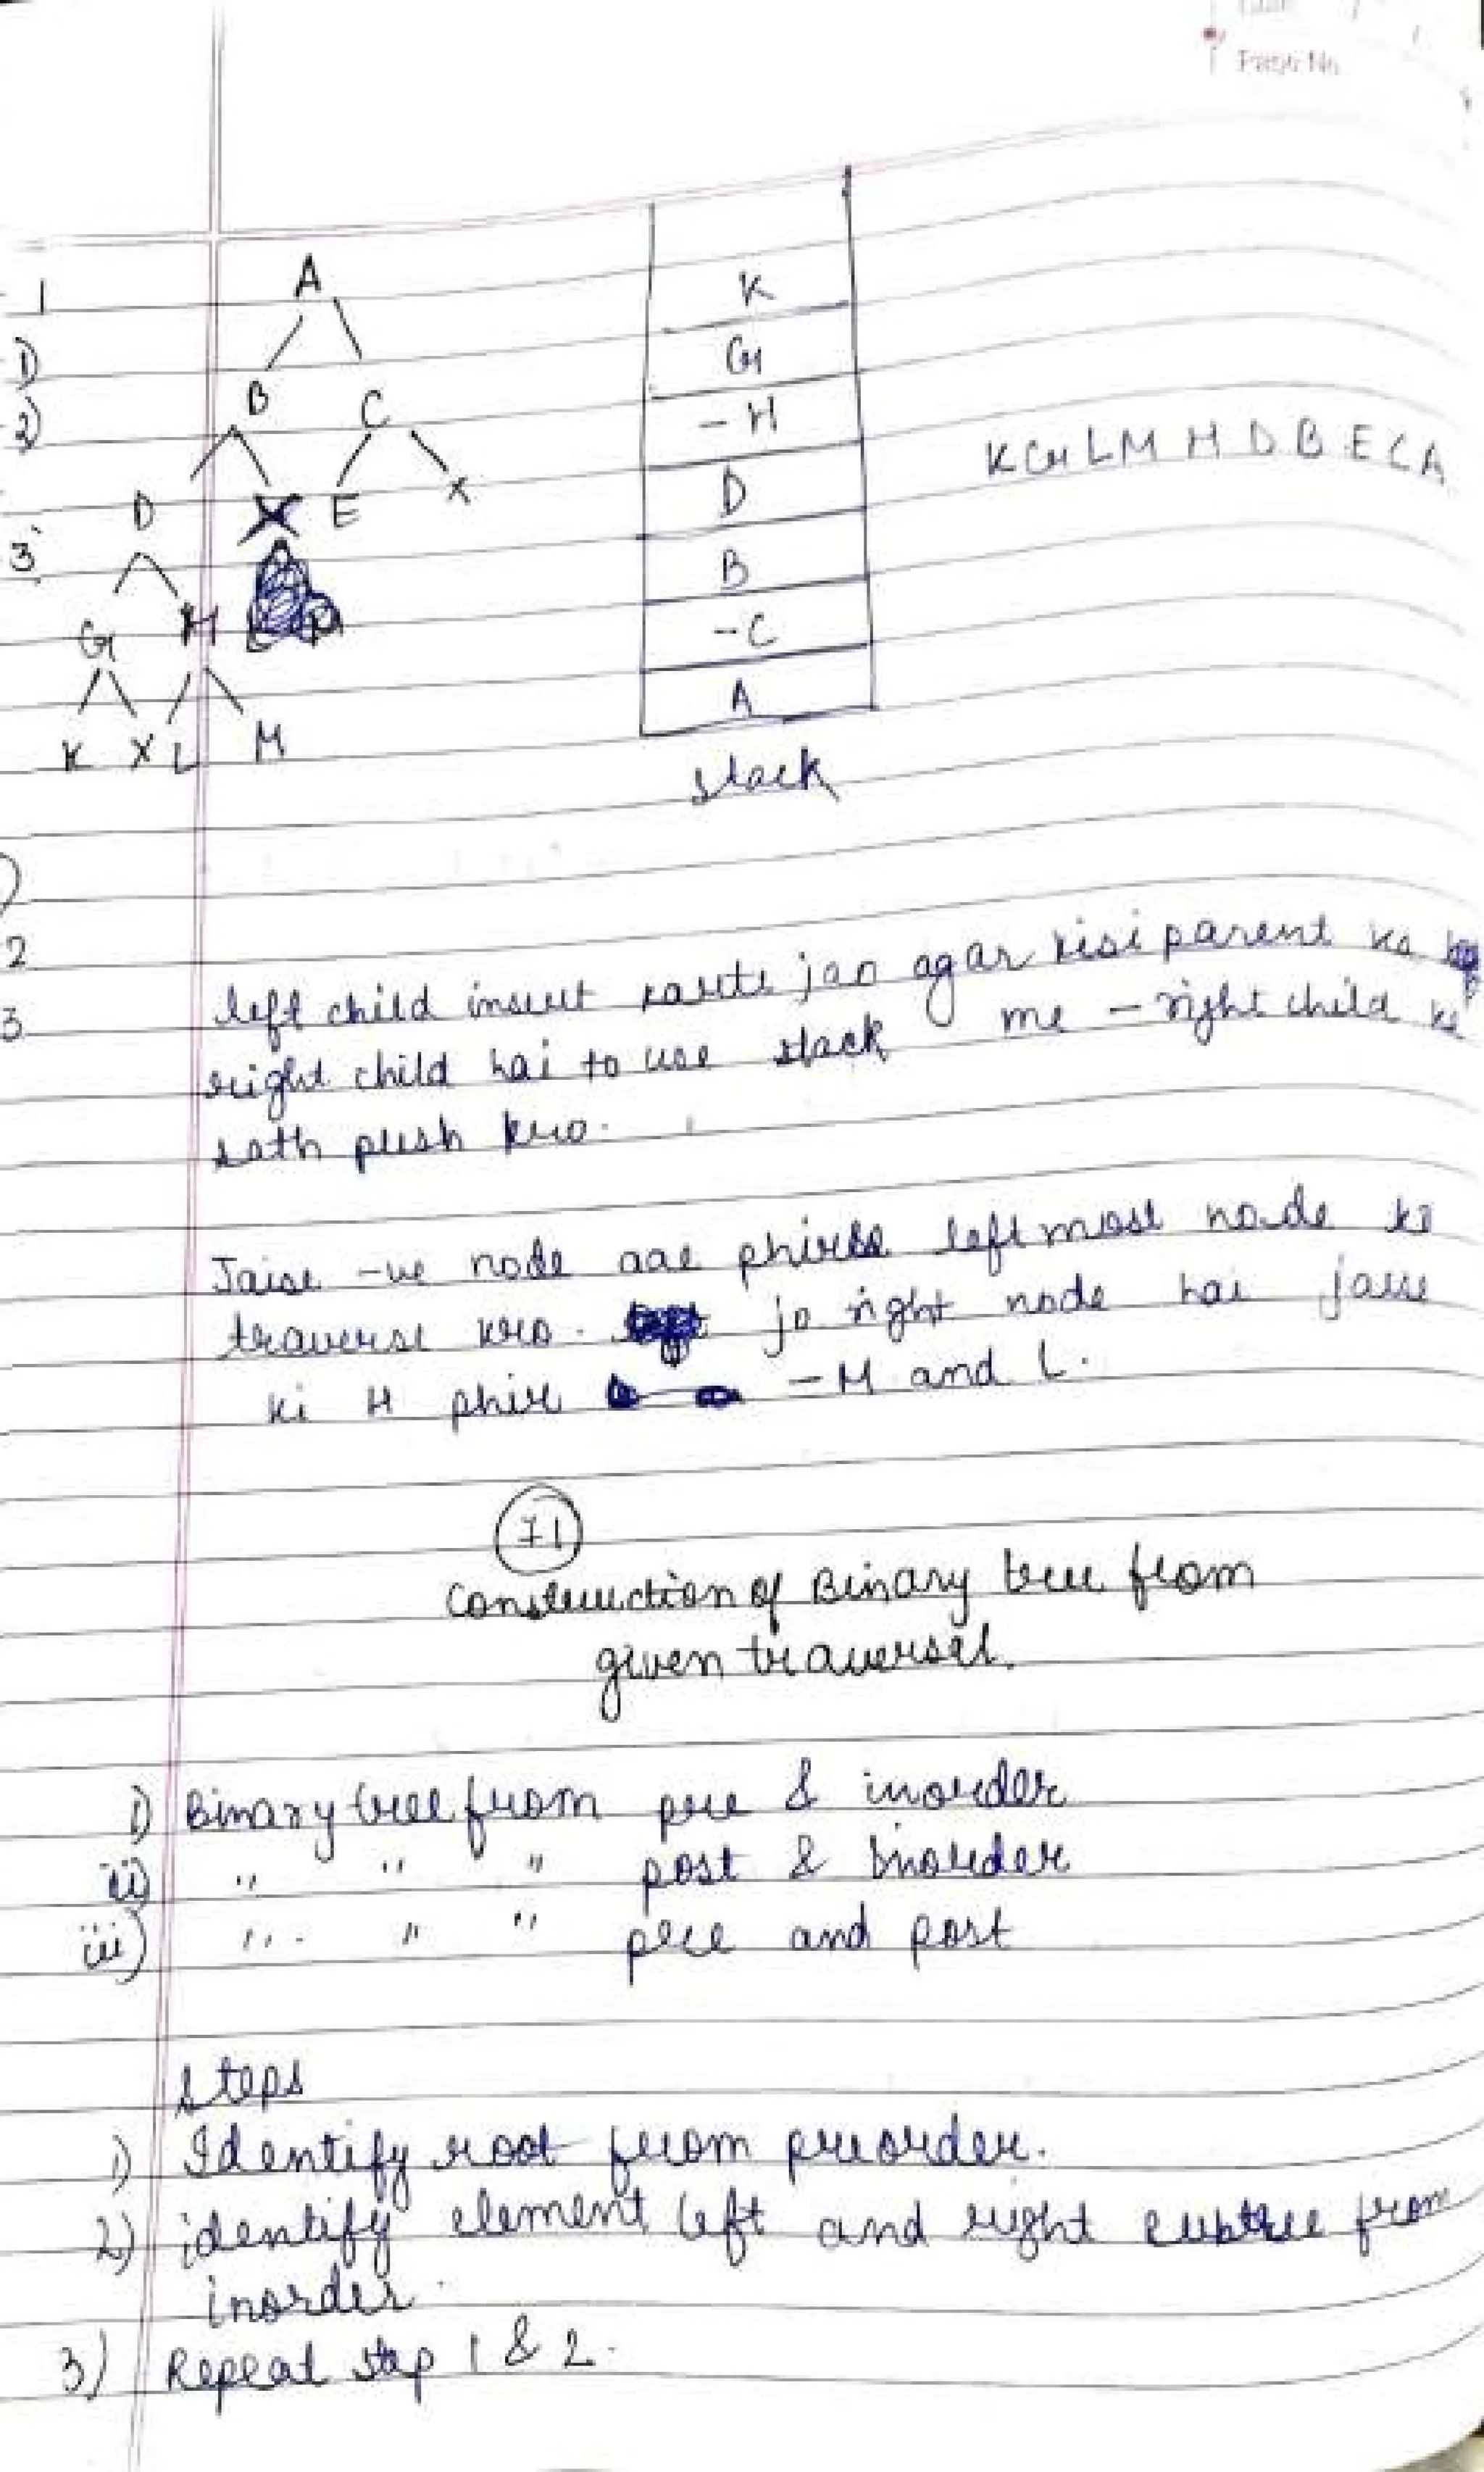 Page No
1
A
1)
B C
2)
D X E X
3
G H
K X L M
K
G
-H
D
B
-C
A
stack
K G L M H D B E C A
2
3
left child insert karte jao agar kisi parent ka
right child hai to use stack me - right child ke
sath push kro.
Jaise -ve node aae phirse leftmost node ko
traverse kro. jo right node hai jaise
ki H phir -M and L.
71
Construction of Binary tree from
given traversal.
i) Binary tree from pre & inorder
ii) " " " post & Inorder
iii) " " " pree and post
steps
1) Identify root from preorder.
2) identify element left and right subtree from
inorder.
3) Repeat step 1 & 2.